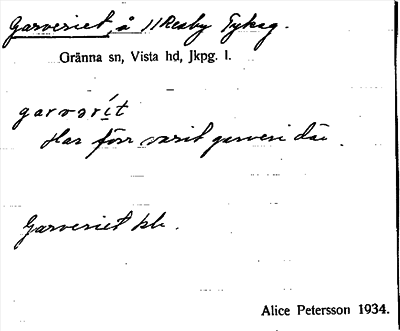 Garveriet, å Ukesby Tyksg.
Gränna sn, Vista hd, Jkpg. l.
garvərít
Har förr varit garveri där.
Garveriet lh.
Alice Petersson 1934.